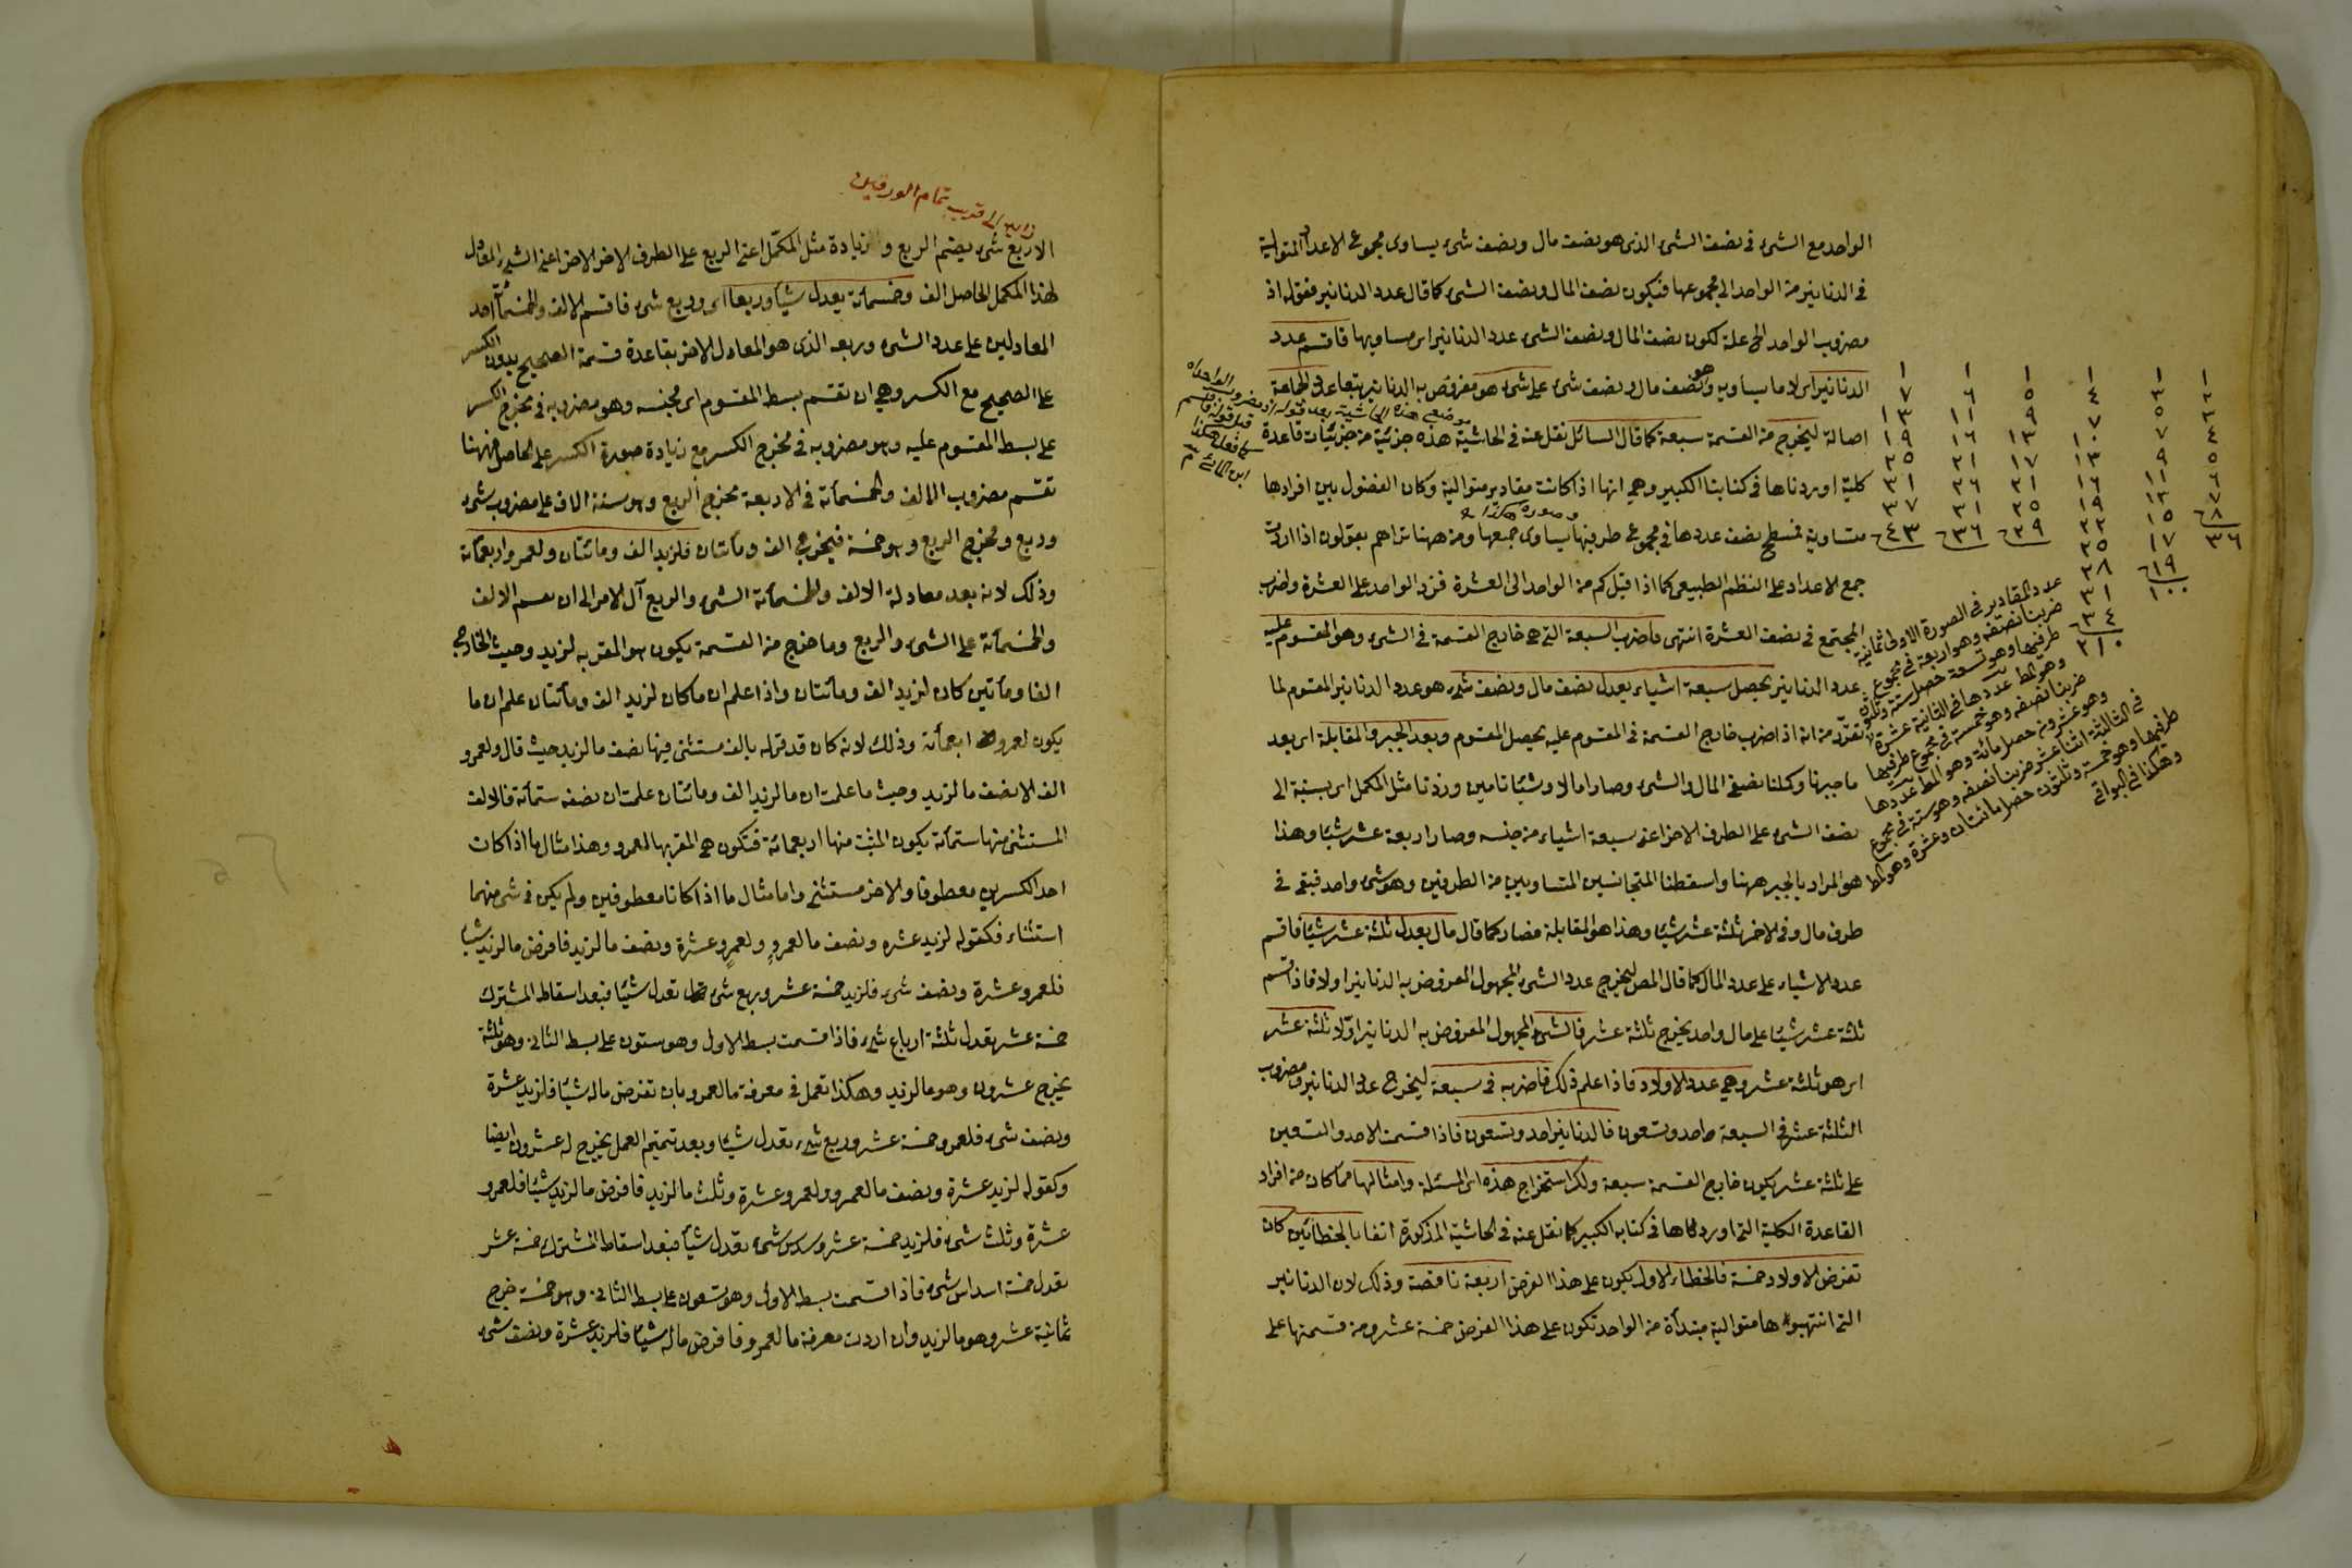 الواحد مع الشئ في نصف الشئ الذى هو نصف مال ونصف شئ يساوى مجموع الاعداد المتوالية
فى الدنانير من الواحد الى مجموعها فيكون نصف المال ونصف الشئ كما قال عدد الدنانير فقوله اذ
مضروب الواحد الخ علة لكون نصف المال ونصف الشئ عدد الدنانير اى مساويها فاقسم عدد
الدنانير اى لا ما يساويه وهو نصف مال ونصف شئ على شئ هو مفروض به الدنانير
اصالة ليخرج من القسمة سبعة كما قال السائل نقل عنه فى الحاشية هذه جزئية من جزئيات قاعدة
كلية اوردناها فى كتابنا الكبير وهى انها اذا كانت مقادير متوالية وكان الفضول بين افرادها
متساوية فمسطح نصف عددها فى مجموع طرفيها يساوى جمعها ومن ههنا تراهم يقولون اذا اردت
جمع الاعداد على النظم الطبيعى كما اذا قيل كم من الواحد الى العشرة فزد الواحد على العشرة واضرب
المجتمع فى نصف العشرة انتهى فاضرب السبعة التى هى خارج القسمة فى الشئ وهو المقسوم عليه
عدد الدنانير يحصل سبعة اشياء يعدل نصف مال ونصف شئ هو عدد الدنانير المقسوم لما
تقرر من انه اذا ضرب خارج القسمة فى المقسوم عليه يحصل المقسوم وبعد الجبر والمقابلة اى بعد
ما جبرنا وكملنا نصفى المال والشئ وصارا مالا وشيئا تامين وزدنا مثل المكمل اى بنسبة الى
نصف الشئ على الطرف الاخر اعنى سبعة اشياء من جنسه وصار اربعة عشر شيئا وهذا
هو المراد بالجبر ههنا واسقطنا المتجانسين المتساويين من الطرفين وهو شئ واحد فبقى فى
طرف مال وفى الاخر ثلثة عشر شيئا وهذا هو المقابلة فصار كما قال مال يعدل ثلثة عشر شيئا فاقسم
عدد الاشياء على عدد المال كما قال المص ليخرج عدد الشئ المجهول المفروض به الدنانير اولا فاذا قسم
ثلثة عشر شيئا على مال واحد يخرج ثلثة عشر فالشئ المجهول المفروض به الدنانير اولا ثلثة عشر
اى هو ثلثة عشر وهى عدد الاولاد فاذا علم ذلك فاضربه فى سبعة ليخرج عدد الدنانير ومضروب
الثلثة عشر فى السبعة واحد وتسعون فالدنانير احد وتسعون فاذا قسمت الاحد والتسعين
على ثلثة عشر يكون خارج القسمة سبعة ولك استخراج هذه اى المسئلة وامثالها مما كان من افراد
القاعدة الكلية التى اوردناها فى كتابه الكبير كما نقل عنه فى الحاشية المذكورة انفا بالخطائين كان
تفرض الاولاد خمسة فالخطاء الاول يكون على هذا الفرض اربعة ناقصة وذلك لان الدنانير
التى متوالية مبتدأة من الواحد تكون على هذا الفرض خمسة عشر ومن قسمتها على
وصورة هكذا
موضع هذه الحاشية بعد قوله اذ مضروب الواحد اه
قبل قوله فاقسم
كما فعل هكذا
١ ١ ١ ١ ١ ١
٢ ٣ ٤ ٥ ٦ ٧
٣ ٥ ٧ ٩ ١١ ١٣
٤ ٧ ١٠ ١٣ ١٦ ١٩
٥ ٩ ١٣ ١٧ ٢١ ٢٥
٦ ١١ ١٦ ٢١ ٢٦ ٣١
٧ ١٣ ١٩ ٢٥ ٣١ ٣٧
٨ ١٥ ٢٢ ٢٩ ٣٦ ٤٣
٣٦ ١٧ ٢٥
١٩ ٢٨
١٠٠ ٣١
٣٤
٢١٠
عدد المقادير فى الصورة الاولى ثمانية
ضربنا نصفه وهو اربعة فى مجموع
طرفيها وهو تسعة حصل ستة وثلثون
وهو المط عددها فى الثانية عشرة
ضربنا نصفه وهو خمسة فى مجموع طرفيها
وهو عشرون حصل مائة وهو المط عددها
فى الثالثة اثنا عشر ضربنا نصفه وهو ستة فى مجموع
طرفيها وهو خمسة وثلثون حصل مائتان وعشرة وهو المط
وهكذا فى البواقى
تمام الورقين
الا ربع شئ يضم الربع وزيادة مثل المكمل اعنى الربع على الطرف الاخر اعنى الشئ المعادل
لهذا المكمل الحاصل الف وخمسمائة يعدل شيئا وربعا اى وربع شئ فاقسم الالف والخمسمائة احد
المعادلين على عدد الشئ وربعه الذى هو المعادل الاخر بقاعدة قسمة الصحيح بدون الكسر
على الصحيح مع الكسر وهى ان تقسم بسط المقسوم اى مجنسه وهو مضروبه فى مخرج الكسر
على بسط المقسوم عليه وهو مضروبه فى مخرج الكسر مع زيادة صورة الكسر على الحاصل فههنا
تقسم مضروب الالف والخمسمائة فى الاربعة مخرج الربع وهو ستة الاف على مضروب شئ
وربع ومخرج الربع وهو خمسة فيخرج الف ومائتان فلزيد الف ومائتان ولعمرو اربعمائة
وذلك لانه بعد معادلة الالف والخمسمائة الشئ والربع آل الامر الى ان نقسم الالف
والخمسمائة على الشئ والربع وما خرج من القسمة يكون هو المقر به لزيد وحيث الخارج
الفا ومأتين كان لزيد الف ومائتان واذا علم ان ما كان لزيد الف ومائتان علم ان ما
يكون لعمرو اربعمائة وذلك لانه كان قد قر له بالف مستثنى فيها نصف ما لزيد حيث قال ولعمرو
الف الا نصف ما لزيد وحيث ما علمت ان ما لزيد الف ومائتان علمت ان نصف ستمائة فالالف
المستثنى منها ستمائة يكون المثبت منها اربعمائة فتكون هى المقر بها لعمرو وهذا مثال ما اذا كان
احد الكسرين معطوفا والاخر مستثنى واما مثال ما اذا كانا معطوفين ولم يكن فى شئ منهما
استثناء فكقوله لزيد عشرة ونصف ما لعمرو ولعمرو عشرة ونصف ما لزيد فافرض ما لزيد شيئا
فلعمرو عشرة ونصف شئ فلزيد خمسة عشر وربع شئ يعدل شيئا فبعد اسقاط المشترك
خمسة عشر يعدل ثلثة ارباع شئ فاذا قسمت بسط الاول وهو ستون على بسط الثانى وهو ثلثة
يخرج عشرون وهو ما لزيد وهكذا تعمل فى معرفة ما لعمرو بان تفرض ماله شيئا فلزيد عشرة
ونصف شئ فلعمرو خمسة عشر وربع شئ يعدل شيئا وبعد تتميم العمل يخرج له عشرون ايضا
وكقوله لزيد عشرة ونصف ما لعمرو ولعمرو عشرة وثلث ما لزيد فافرض ما لزيد شيئا فلعمرو
عشرة وثلث شئ فلزيد خمسة عشر وسدس شئ يعدل شيئا فبعد اسقاط المشترك خمسة عشر
يعدل خمسة اسداس شئ فاذا قسمت بسط الاول وهو تسعون على بسط الثانى وهو خمسة خرج
ثمانية عشر وهو ما لزيد وان اردت معرفة ما لعمرو فافرض ماله شيئا فلزيد عشرة ونصف شئ